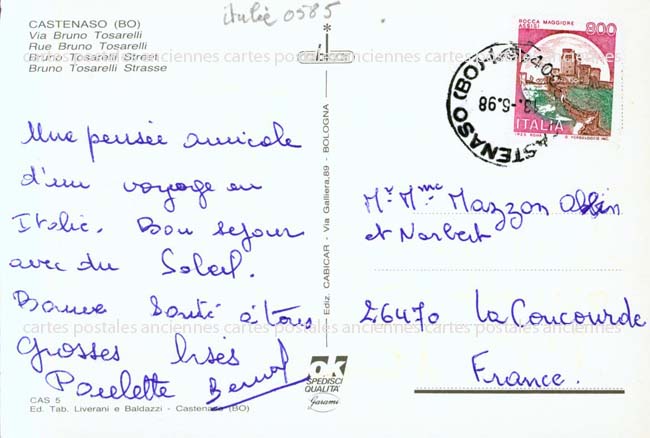 italie 0585
CASTENASO (BO)
Via Bruno Tosarelli
Rue Bruno Tosarelli
Bruno Tosarelli Street
Bruno Tosarelli Strasse
Une pensée amicale
d'un voyage en
Italie. Bon sejour
avec du Soleil.
Bonne Santé à tous
Grosses bises
Paulette
CAS 5
Ed. Tab. Liverani e Baldazzi - Castenaso (BO)
Ediz. CABICAR - Via Galliera, 89 - BOLOGNA
ok
SPEDISCI
QUALITA'
Garami
ROCCA MAGGIORE
ASSISI
900
ITALIA
CASTENASO (BO)
13.-6.98
Mr Mme Mazzon
et Norbert
26470 La Concourde
France.
cartes postales anciennes cartes postales anciennes
cartes postales anciennes cartes postales anciennes